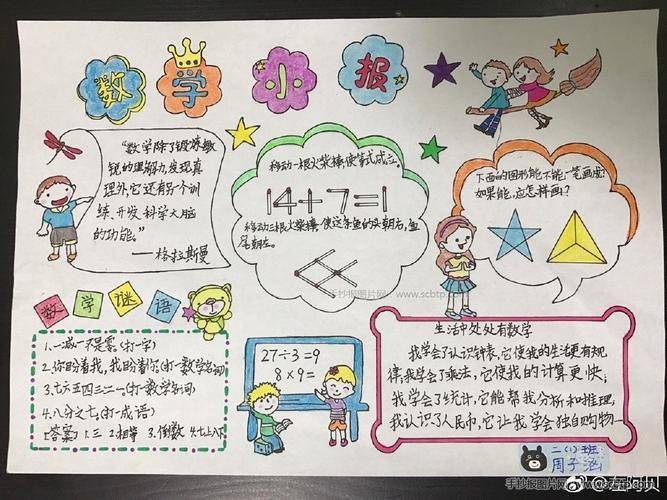 数学小报
“数学除了锻炼敏
锐的理解力,发现真
理外,它还有另个训
练、开发、科学大脑
的功能。”
——格拉斯曼
移动一根火柴棒,使等式成立。
14+7=1
移动三根火柴棒,使这条鱼的头朝右,鱼
尾朝左。
下面的图形能不能一笔画成?
如果能,应怎样画?
数学谜语
1.一减一不是零(打一字)
2.你盼着我,我盼着你(打一数学名词)
3.七六五四三二一(打一数学名词)
4.八分之七(打一成语)
【答案】1.三 2.相等 3.倒数 4.七上八下
27÷3=9
8×9=
生活中处处有数学
我学会了认识钟表,它使我的生活更有规
律,我学会了乘法,它使我的计算更快;
我学会了统计,它能帮我分析和推理,
我认识了人民币,它让我学会独自购物…
二(1)班
周子涵
手抄报图片网 www.scbtp.com
手抄报图片网